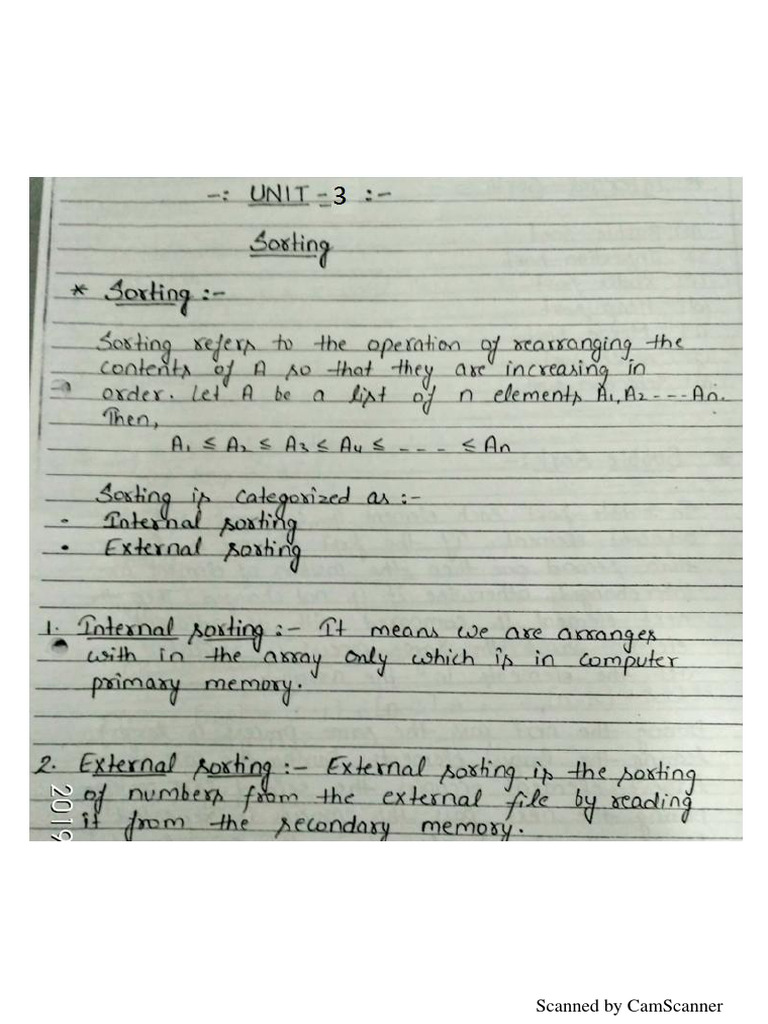 -: UNIT - 3 :-
Sorting
* Sorting :-
Sorting refers to the operation of rearranging the
contents of A so that they are increasing in
order. Let A be a list of n elements A1, A2 --- An.
Then,
A1 ≤ A2 ≤ A3 ≤ A4 ≤ ---- ≤ An
Sorting is categorized as :-
• Internal sorting
• External sorting
1. Internal sorting :- It means we are arranges
with in the array only which is in computer
primary memory.
2. External sorting :- External sorting is the sorting
of numbers from the external file by reading
it from the secondary memory.
2019
Scanned by CamScanner